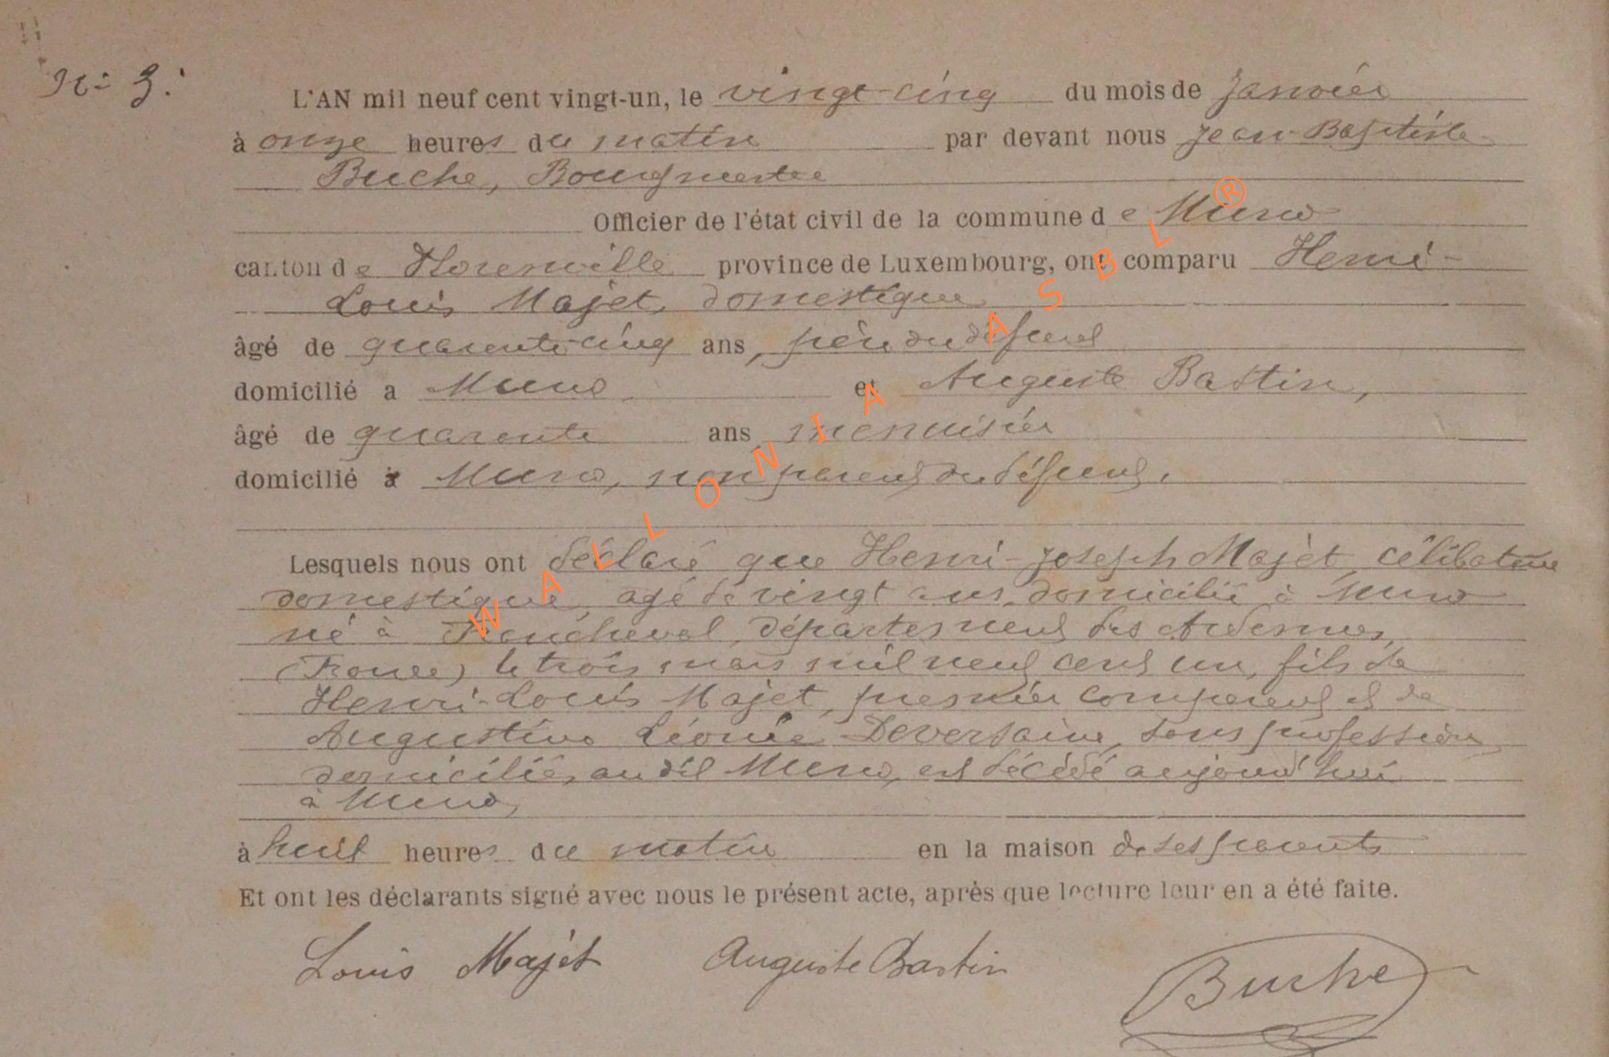 N° 3.
L'AN mil neuf cent vingt-un, le vingt-cinq du mois de Janvier
à onze heures du matin par devant nous Jean-Baptiste
Buche, Bourgmestre
Officier de l'état civil de la commune de Muno
canton de Florenville province de Luxembourg, ont comparu Henri-
Louis Majet, domestique
âgé de quarante-cinq ans, père du défunt
domicilié a Muno et Auguste Bastin,
âgé de quarante ans, menuisier
domicilié à Muno, non parent du défunt.
Lesquels nous ont déclaré que Henri-Joseph Majèt, célibataire
domestique, agé de vingt ans, domicilié à Muno
né à Francheval, département des Ardennes,
(France) le trois mars mil neuf cent un, fils de
Henri-Louis Majet, premier comparant et de
Augustine Léonie Deversaine, sans profession
domiciliés audit Muno, est décédé aujourd'hui
à Muno,
à huit heures du matin en la maison de ses parents
Et ont les déclarants signé avec nous le présent acte, après que lecture leur en a été faite.
Louis Majèt Auguste Bastin Buche
WALLONIA ASBL ®